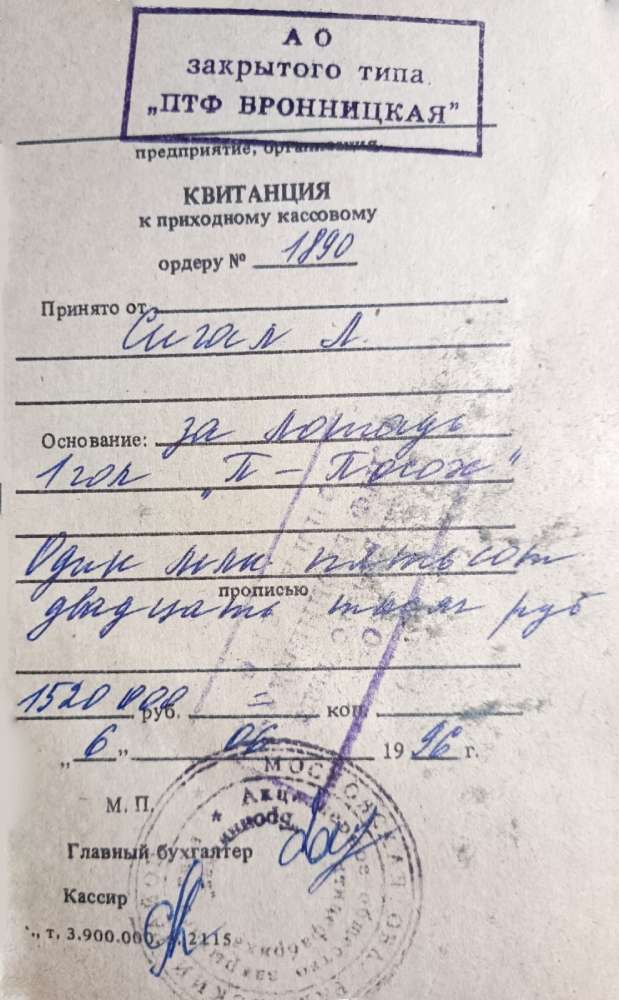 А О
закрытого типа
„ПТФ БРОННИЦКАЯ”
предприятие, организация
КВИТАНЦИЯ
к приходному кассовому
ордеру № 1890
Принято от
Сигал Л.
Основание: за лошадь
1 гол „П – Посох”
Один мил. пятьсот
прописью
двадцать тысяч руб
1520 000 руб. = коп.
„ 6 „ 06 19 96 г.
М. П.
МОСКОВСКАЯ
Главный бухгалтер
Кассир
т, 3.900.000, 2115